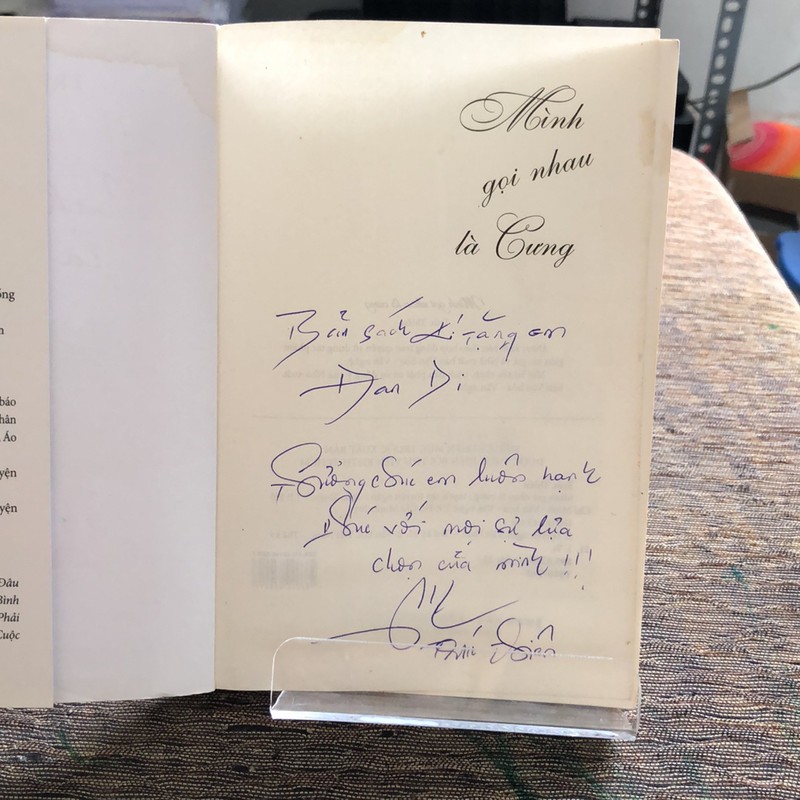 ống
n
báo
hân
Áo
yện
yện
Đâu
Bình
Phải
Cuộc
Mình
gọi nhau
là Cưng
Bản sách kí tặng em
Đan Di
chúc em luôn hạnh
phúc với mọi sự lựa
chọn của mình !!!